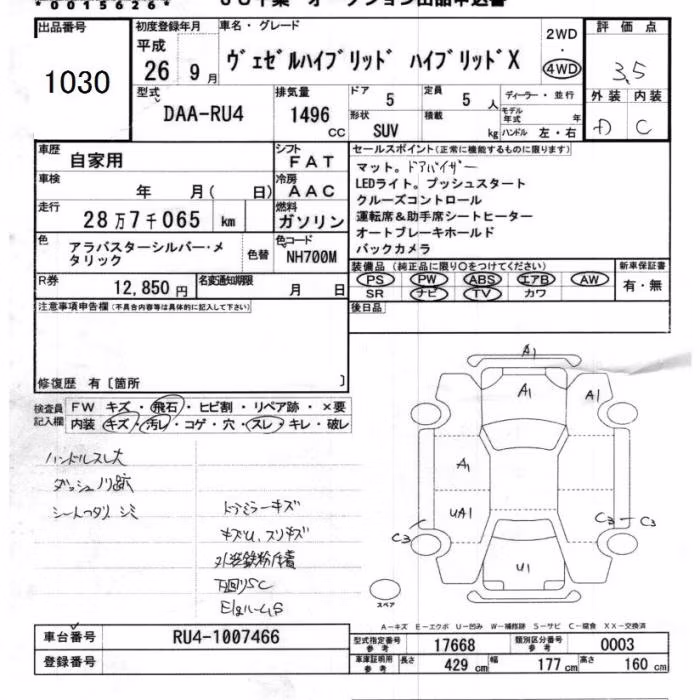 *0015626*
出品番号
1030
初度登録年月
平成
26 9月
車名・グレード
ヴェゼルハイブリッド ハイブリッドX
2WD
・
4WD
評価点
3.5
外装 内装
D C
型式
DAA-RU4
排気量
1496
CC
ドア
5
定員
5 人
形状
SUV
積載
kg
ディーラー・並行
モデル年式 年
ハンドル 左・右
車歴
自家用
シフト
FAT
車検
年 月( 日)
冷房
AAC
走行
28万7千065 km
燃料
ガソリン
色
アラバスターシルバー・メ
タリック
色替
色コード
NH700M
R券
12,850円
名変通知期限
月 日
セールスポイント(正常に機能するものに限ります)
マット。ドアバイザー
LEDライト。プッシュスタート
クルーズコントロール
運転席&助手席シートヒーター
オートブレーキホールド
バックカメラ
装備品(純正品に限り○をつけてください)
PS PW ABS エアB AW
SR ナビ TV カワ
新車保証書
有・無
後日品
注意事項申告欄(不具合内容等は具体的に記入して下さい)
修復歴 有〔箇所 〕
検査員
記入欄
FW キズ・飛石・ヒビ割・リペア跡・×要
内装 キズ・汚レ・コゲ・穴・スレ・キレ・破レ
ハンドルスレ大
ダッシュノリ跡
ドアミラーキズ
下回りSC
A1
A1
A1
A1
UA1
U1
C3
C3
C3
スペア
A-キズ E-エクボ U-凹み W-補修跡 S-サビ C-腐食 XX-交換済
車台番号
RU4-1007466
登録番号
型式指定番号
参考
17668
類別区分番号
参考
0003
車庫証明用
参考
長さ
429 cm
幅
177 cm
高さ
160 cm